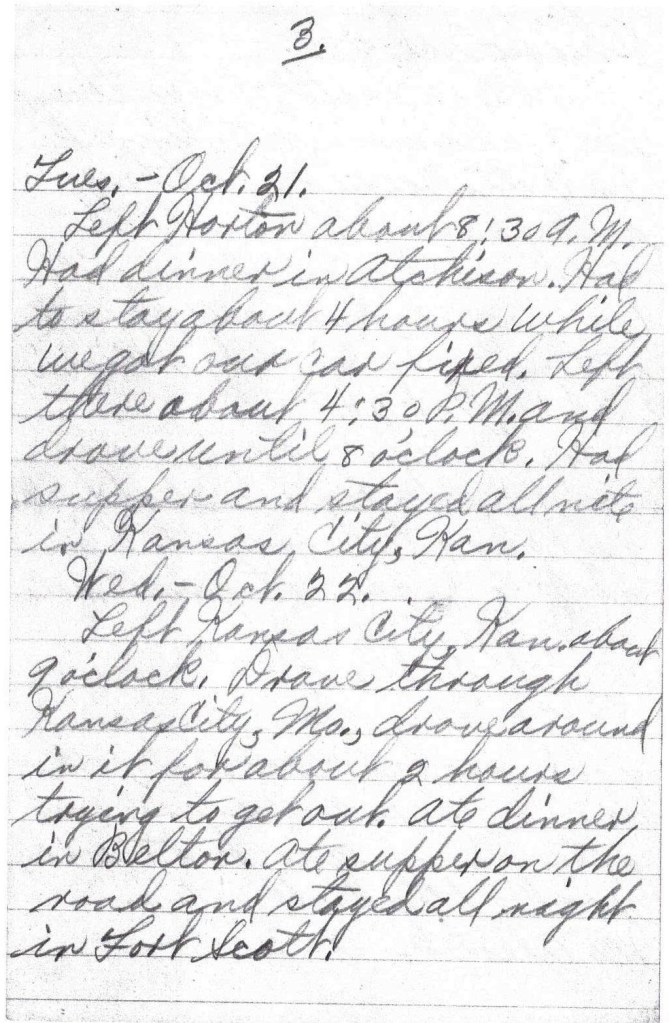 3.
Tues. - Oct. 21.
Left Horton about 8:30 A.M.
Had dinner in Atchison. Had
to stay about 4 hours while
we got our car fixed. Left
there about 4:30 P.M. and
drove until 8 o'clock. Had
supper and stayed all nite
in Kansas City, Kan.
Wed. - Oct. 22.
Left Kansas City, Kan. about
9 o'clock. Drove through
Kansas City, Mo., drove around
in it for about 2 hours
trying to get out. Ate dinner
in Belton. Ate supper on the
road and stayed all night
in Fort Scott.